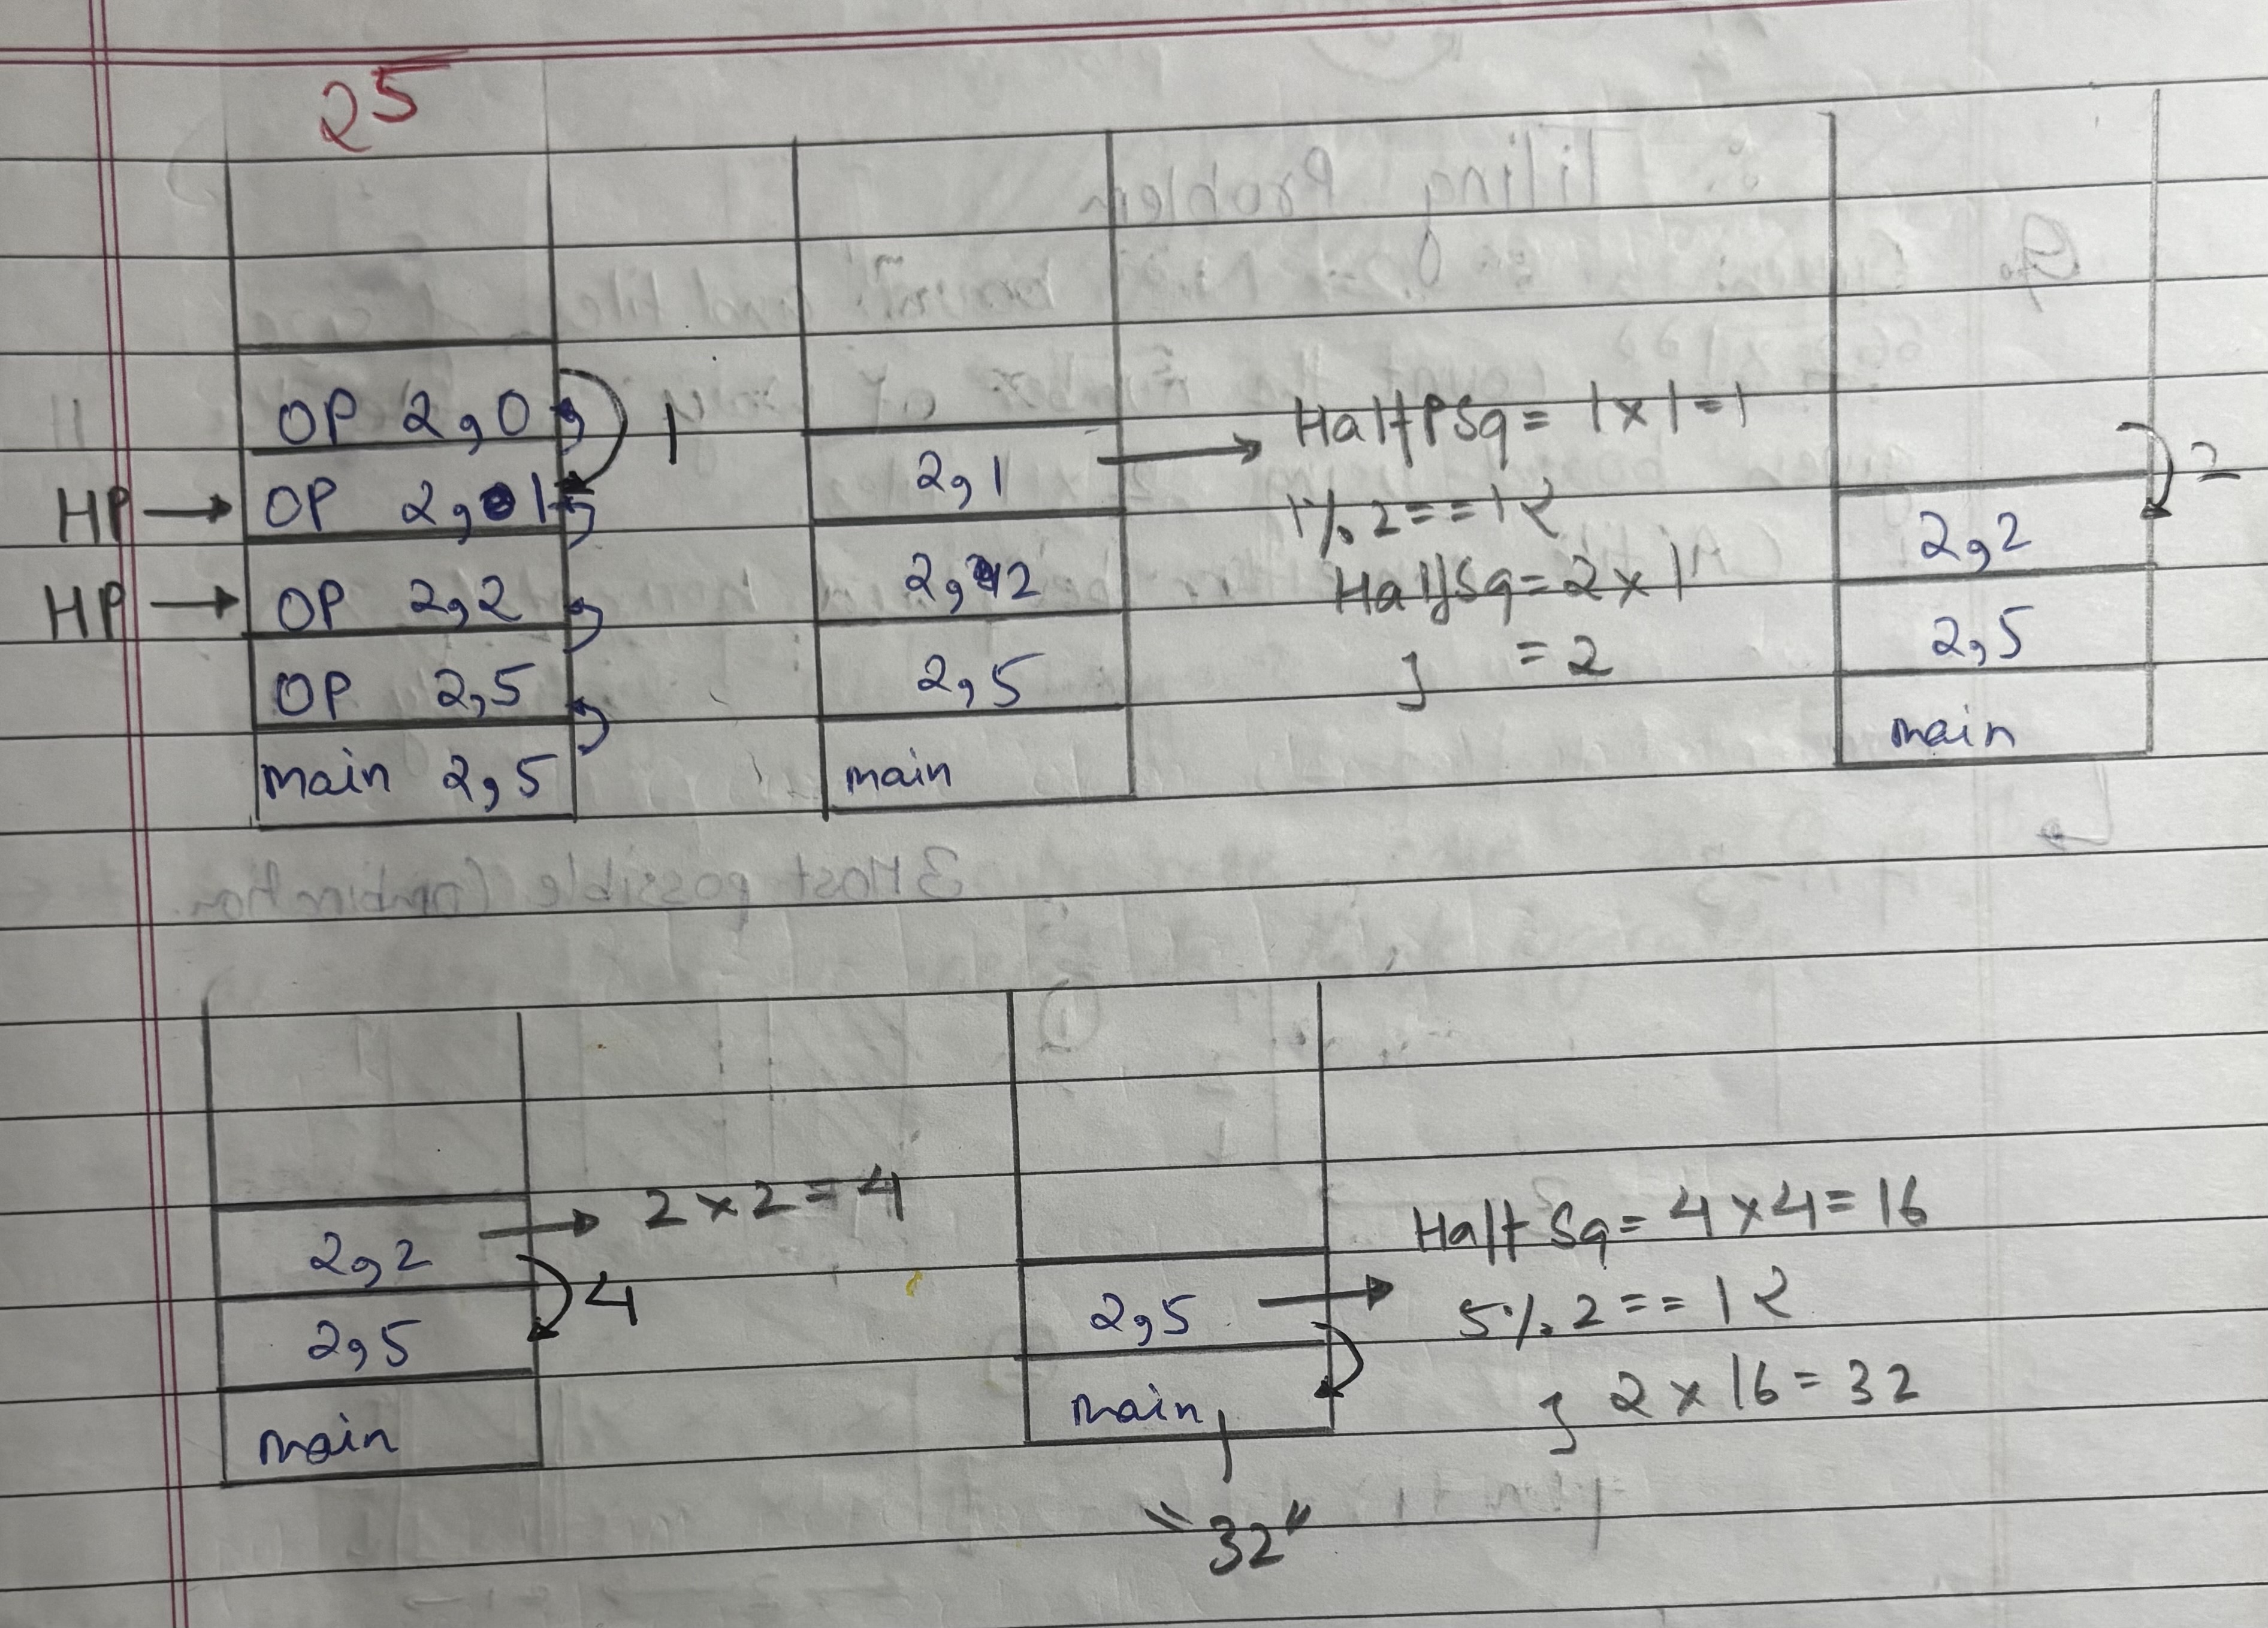 2⁵
OP 2,0
1
HP → OP 2,1
HP → OP 2,2
OP 2,5
main 2,5
2,1 → HalfPSq = 1×1=1
1%2==1 {
HalfSq = 2×1
} = 2
2,2
2,5
main
2
2,2
2,5
main
2,2 → 2×2=4
4
2,5
main
2,5 → Half Sq = 4×4=16
5%2==1 {
} 2×16=32
main
"32"